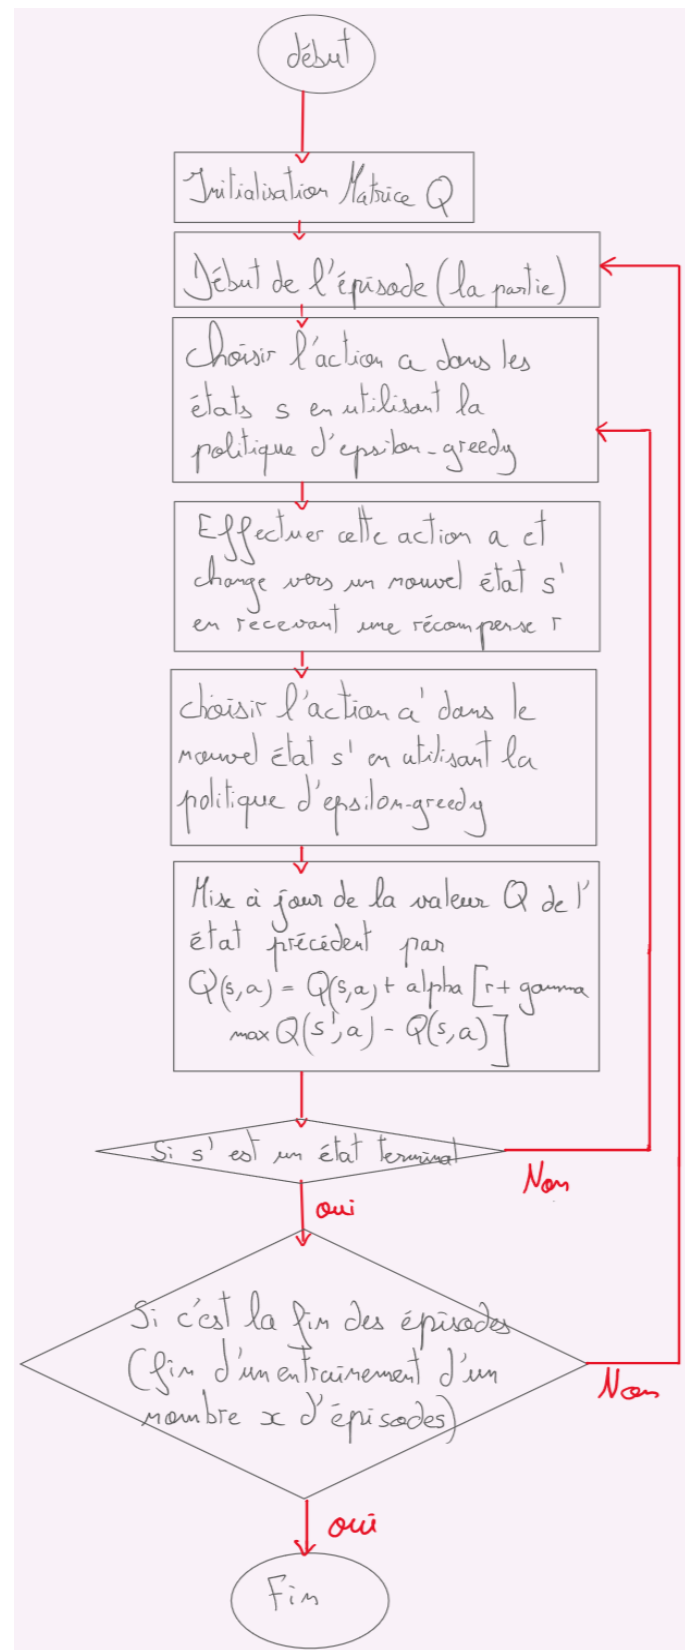 début
Initialisation Matrice Q
Début de l'épisode (la partie)
choisir l'action a dans les
états s en utilisant la
politique d'epsilon-greedy
Effectuer cette action a et
change vers un nouvel état s'
en recevant une récompense r
choisir l'action a' dans le
nouvel état s' en utilisant la
politique d'epsilon-greedy
Mise à jour de la valeur Q de l'
état précédent par
Q(s,a) = Q(s,a) + alpha [r + gamma
max Q(s',a) - Q(s,a)]
Si s' est un état terminal
Non
oui
Si c'est la fin des épisodes
(fin d'un entrainement d'un
nombre x d'épisodes)
Non
oui
Fin